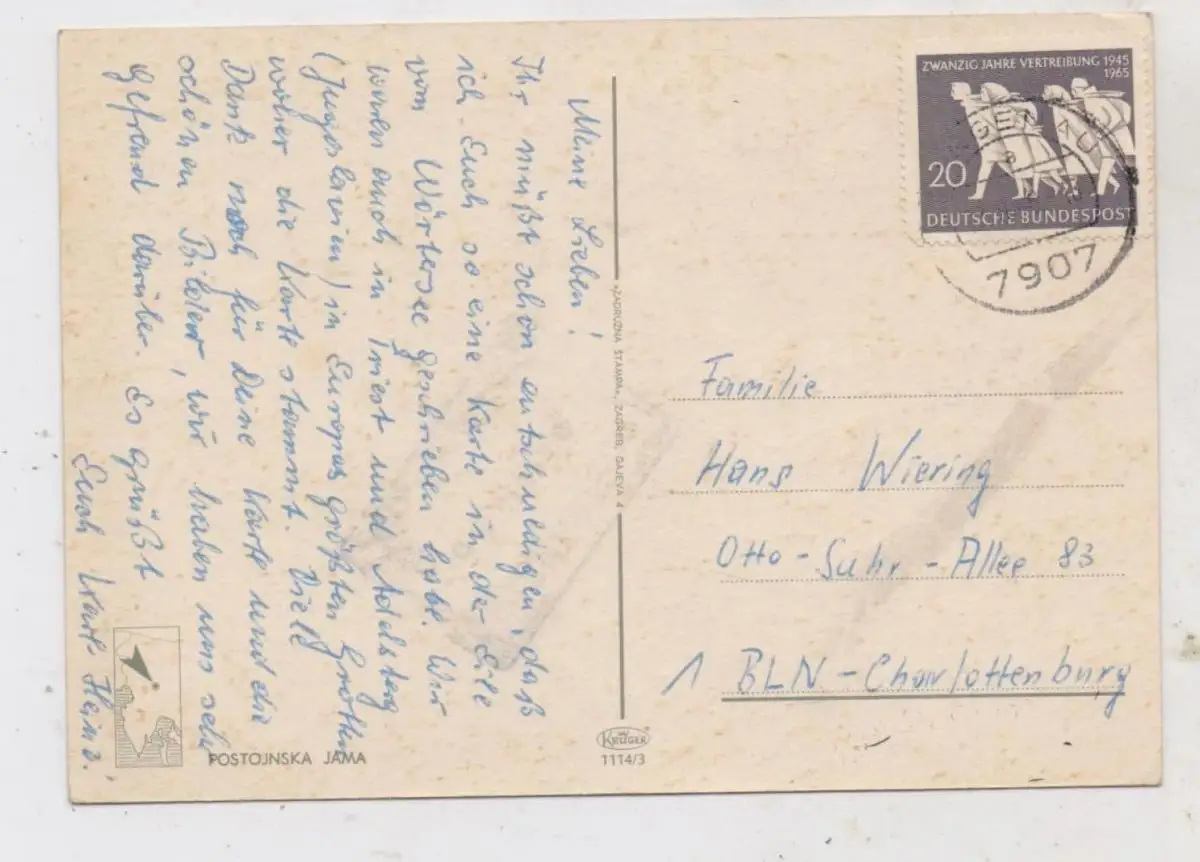 Meine Lieben!
Ihr müßt schon entschuldigen, daß
ich Euch so eine Karte in der Eile
vom Wörtersee geschrieben habe. Wir
waren auch in Triest und Adelsberg
(Jugoslavien) in Europas größten Grotten
woher die Karte stammt. Viele
Dank noch für Deine Karte und die
schönen Bilder, wir haben uns sehr
gefreud darüber. Es grüßt
Euch Karl-Heinz.
POSTOJNSKA JAMA
»ZADRUŽNA ŠTAMPA«, ZAGREB, GAJEVA 4
KRÜGER
1114/3
ZWANZIG JAHRE VERTREIBUNG 1945
1965
20
DEUTSCHE BUNDESPOST
7907
Familie
Hans Wiering
Otto-Suhr-Allee 83
1 BLN-Charlottenburg